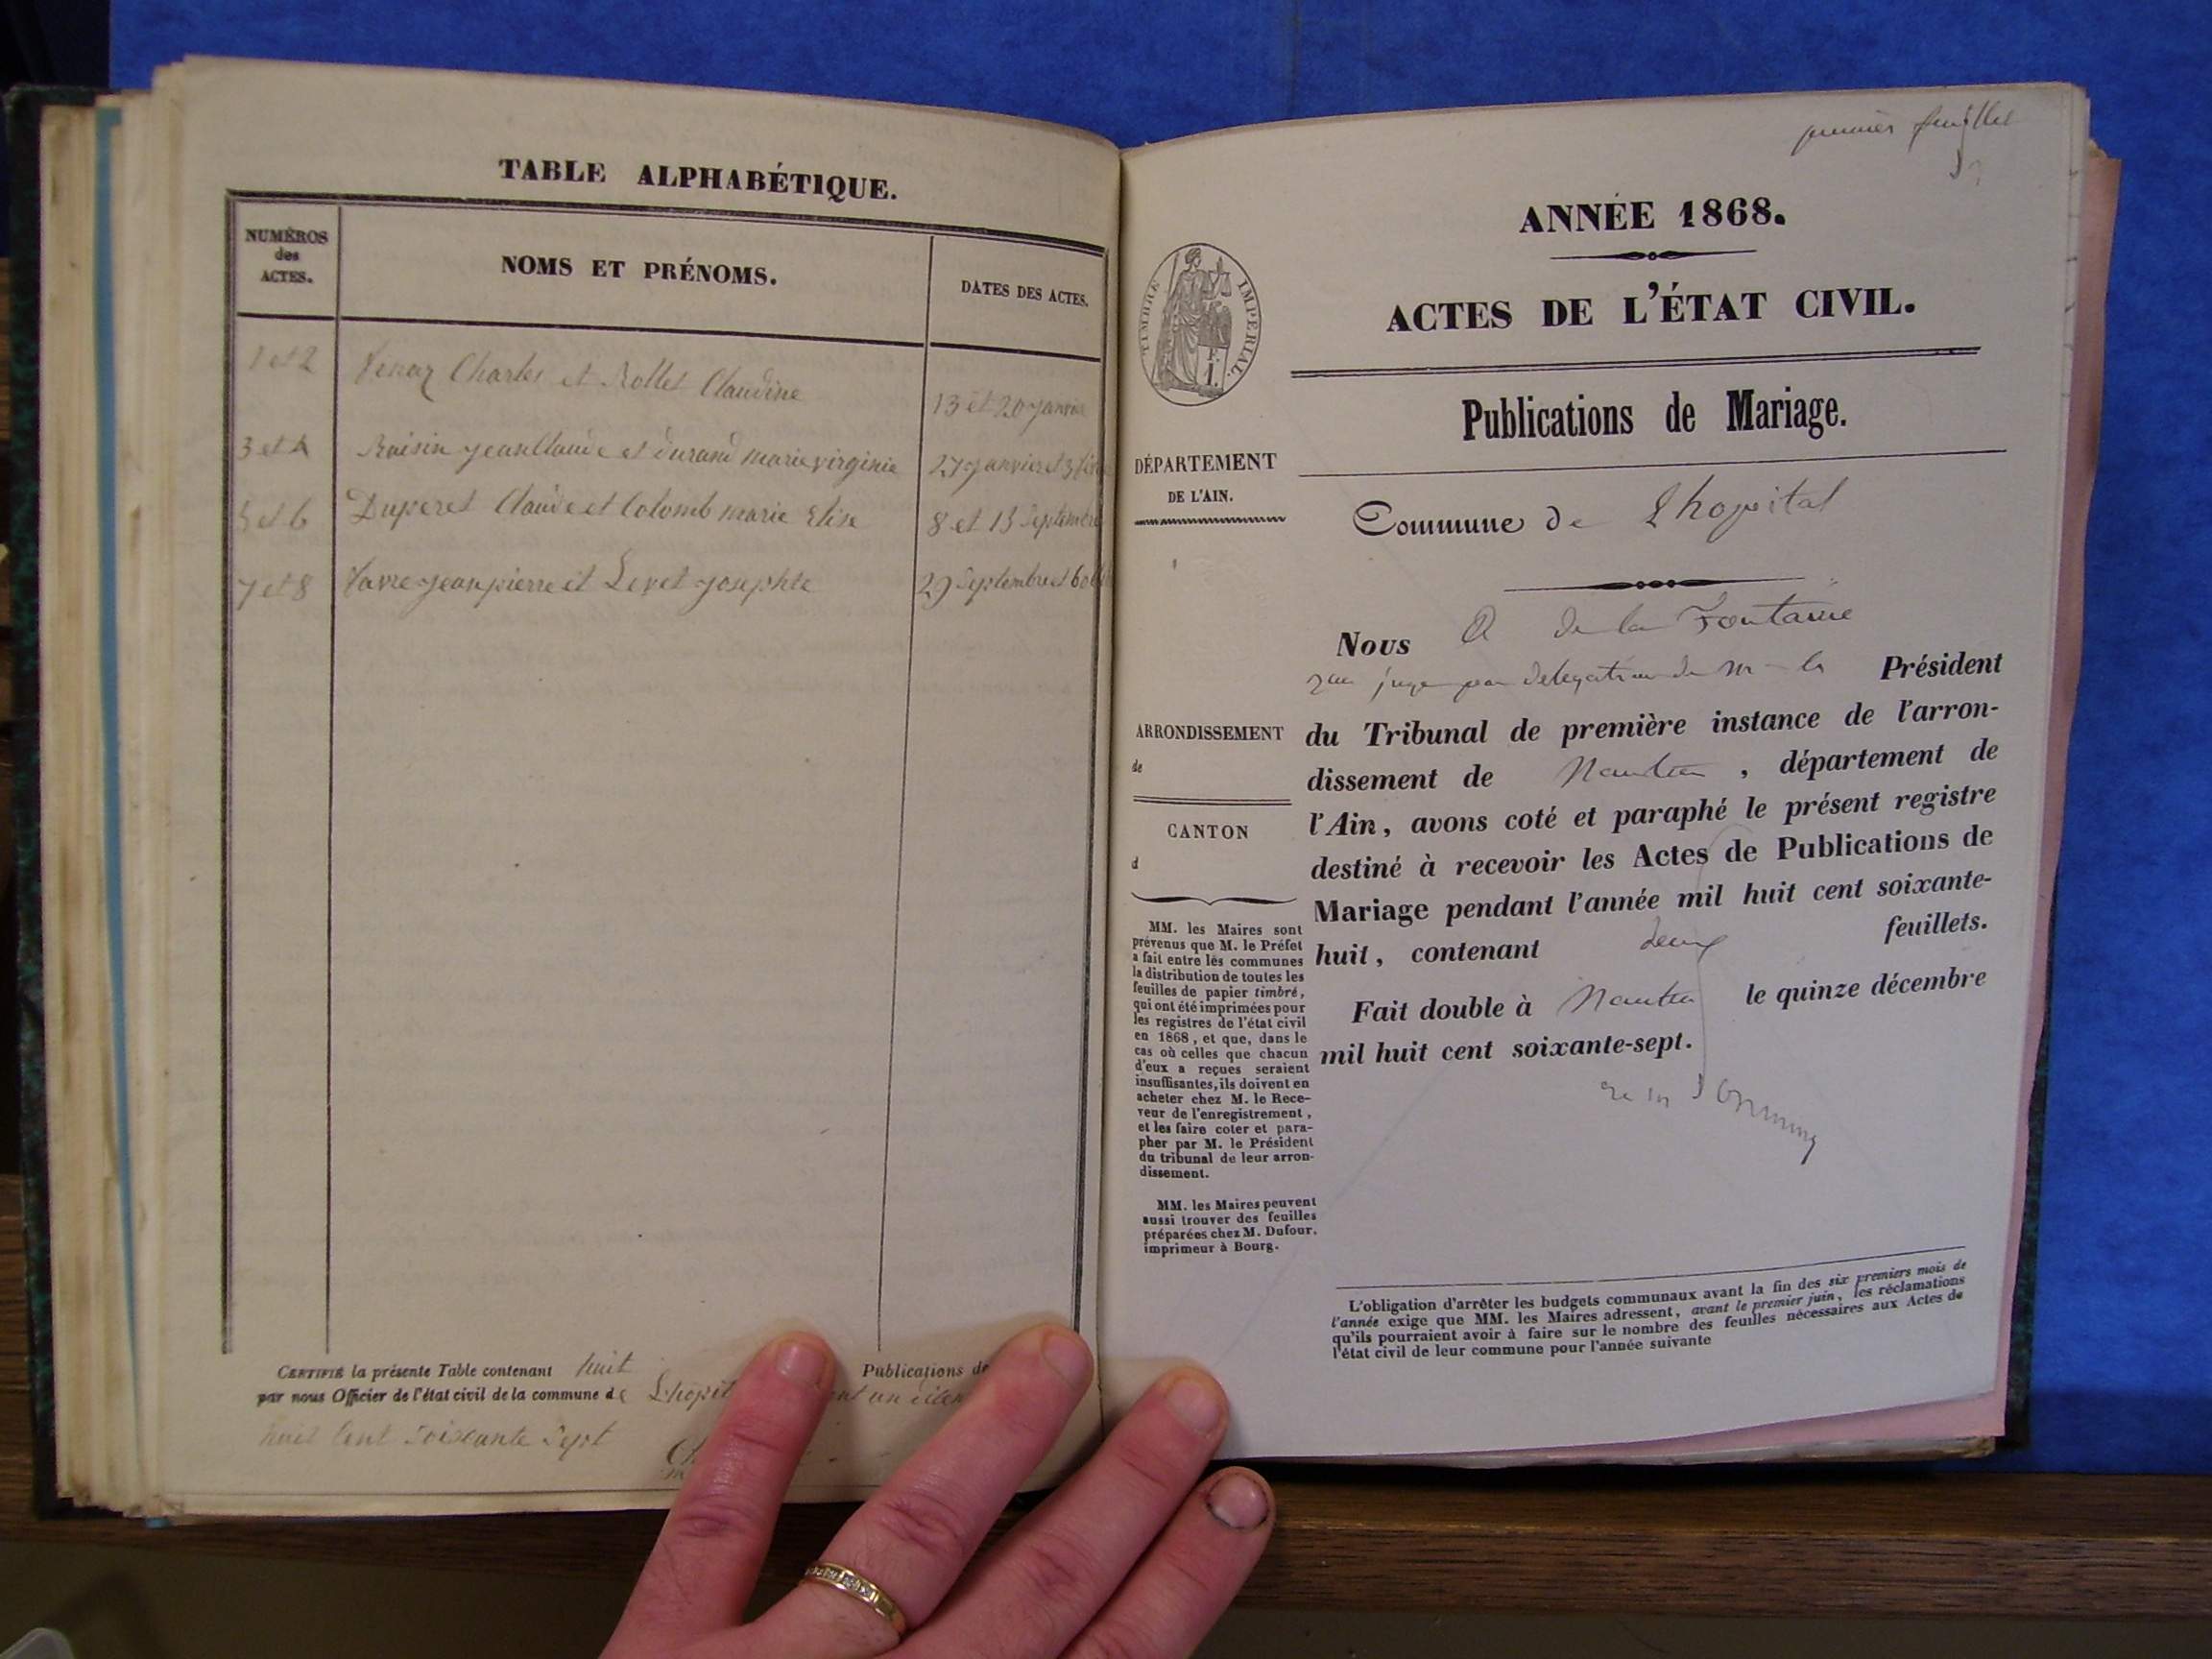 TABLE ALPHABÉTIQUE.
NUMÉROS
des
ACTES.
NOMS ET PRÉNOMS.
DATES DES ACTES.
1 et 2 Charles et Rollet Claudine 13 et 20 janvier
3 et 4 Raisin jean Claude et durand marie virginie 27 janvier et 3
5 et 6 Duperet Claude et Colomb marie Elise 8 et 15 Septembre
7 et 8 favre jean pierre et Levet josephte 29 Septembre et 6
CERTIFIÉ la présente Table contenant huit Publications de
par nous Officier de l'état civil de la commune de
huit Cent Soixante Sept
premier feuillet
ANNÉE 1868.
ACTES DE L'ÉTAT CIVIL.
TIMBRE IMPÉRIAL.
F.
1.
Publications de Mariage.
DÉPARTEMENT
DE L'AIN.
Commune de Lhopital
Nous de la Fontaine
juge par delegation de Mr le Président
du Tribunal de première instance de l'arron-
dissement de Nantua, département de
l'Ain, avons coté et paraphé le présent registre
destiné à recevoir les Actes de Publications de
Mariage pendant l'année mil huit cent soixante-
huit, contenant deux feuillets.
Fait double à Nantua le quinze décembre
mil huit cent soixante-sept.
ARRONDISSEMENT
de
CANTON
d
MM. les Maires sont
prévenus que M. le Préfet
a fait entre les communes
la distribution de toutes les
feuilles de papier timbré,
qui ont été imprimées pour
les registres de l'état civil
en 1868, et que, dans le
cas où celles que chacun
d'eux a reçues seraient
insuffisantes, ils doivent en
acheter chez M. le Rece-
veur de l'enregistrement,
et les faire coter et para-
pher par M. le Président
du tribunal de leur arron-
dissement.
MM. les Maires peuvent
aussi trouver des feuilles
préparées chez M. Dufour,
imprimeur à Bourg.
L'obligation d'arrêter les budgets communaux avant la fin des six premiers mois de
l'année exige que MM. les Maires adressent, avant le premier juin, les réclamations
qu'ils pourraient avoir à faire sur le nombre des feuilles nécessaires aux Actes de
l'état civil de leur commune pour l'année suivante